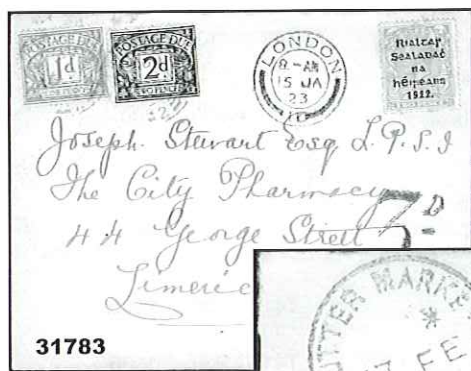 POSTAGE DUE
1d
POSTAGE DUE
2d
TWO PENCE
LONDON
8-AM
15 JA
23
Rialtar
Sealadaċ
na
hÉireann
1922.
Joseph. Stewart Esq L.P.S.I
The City Pharmacy
44 George Strett
7d
Limeric
31783
UTTER MARKE
7 FE